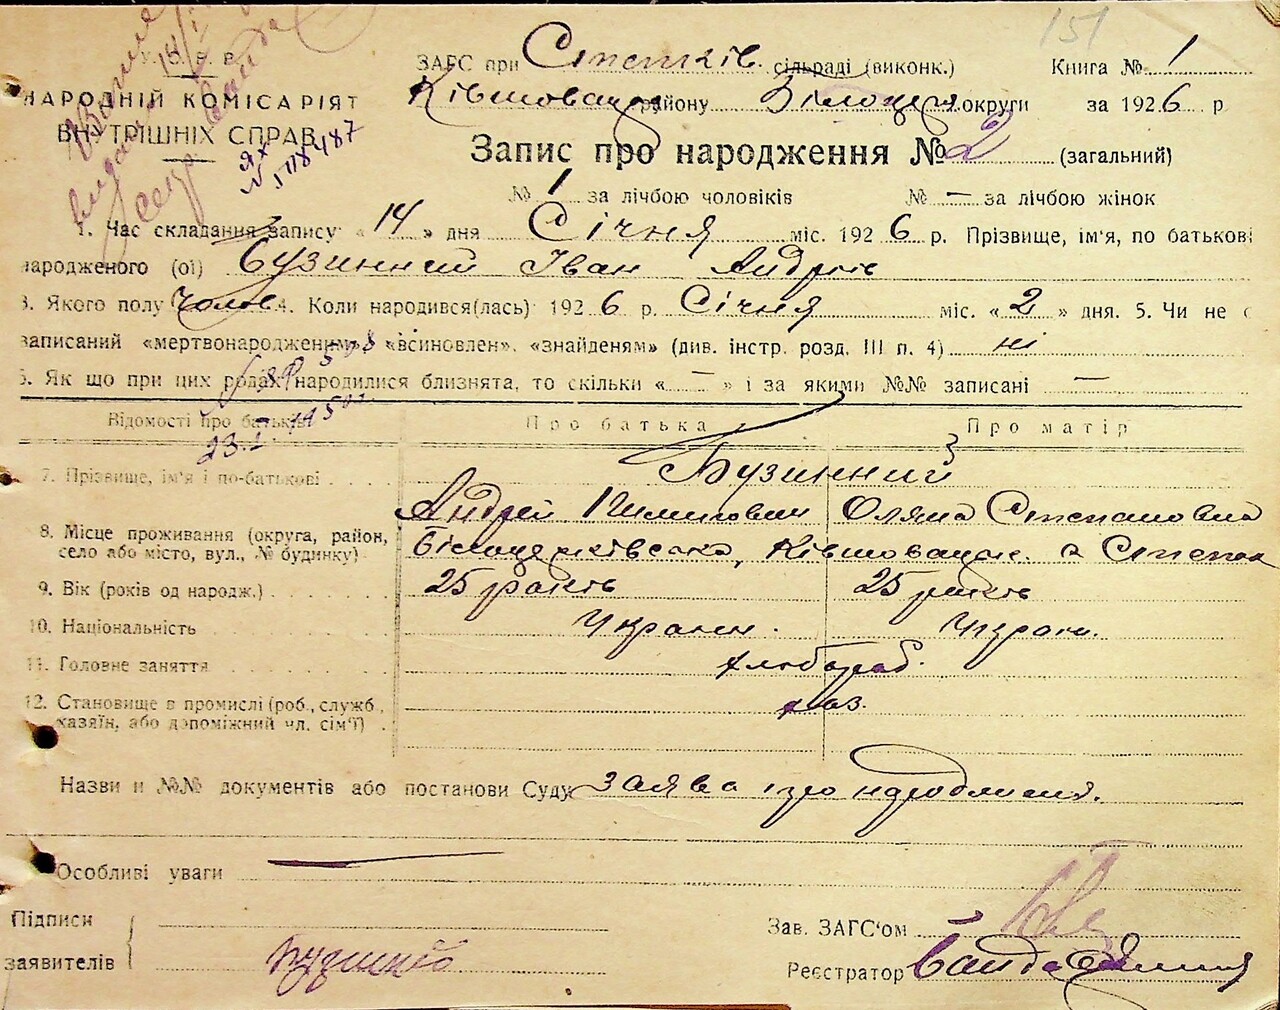 151
У.С.Р.Р.
НАРОДНІЙ КОМІСАРІЯТ
ВНУТРІШНІХ СПРАВ
ЗАГС при Степків. сільраді (виконк.) Книга № 1
Ківшовацьк району Білоцерк округи за 1926 р
Запис про народження № 2 (загальний)
№ 1 за лічбою чоловіків № — за лічбою жінок
1. Час складання запису: « 14 » дня Січня міс. 1926 р. Прізвище, ім'я, по батькові
народженого (ої) Бузинний Іван Андрієв
3. Якого полу Чолов 4. Коли народився(лась) 1926 р. Січня міс. « 2 » дня. 5. Чи не є
записаний «мертвонародженим» «всиновлен», «знайденям» (див. інстр. розд. III п. 4) ні
6. Як що при цих родах народилися близнята, то скільки « — » і за якими №№ записані —
Відомості про батьків Про батька Про матір
7. Прізвище, ім'я і по-батькові Бузинний
Андрій Оляна Степановна
8. Місце проживання (округа, район, село або місто, вул., № будинку) Білоцерківська, Ківшовацьк.
9. Вік (років од народж.) 25 років 25 років
10. Національність Україн. Україн.
11. Головне заняття хлібороб.
12. Становище в промислі (роб., служб., хазяїн, або допоміжний чл. сім'ї) хаз.
Назви й №№ документів або постанови Суду заява про народження.
Особливі уваги
Підписи
заявителів Бузинний
Зав. ЗАГС'ом
Реєстратор